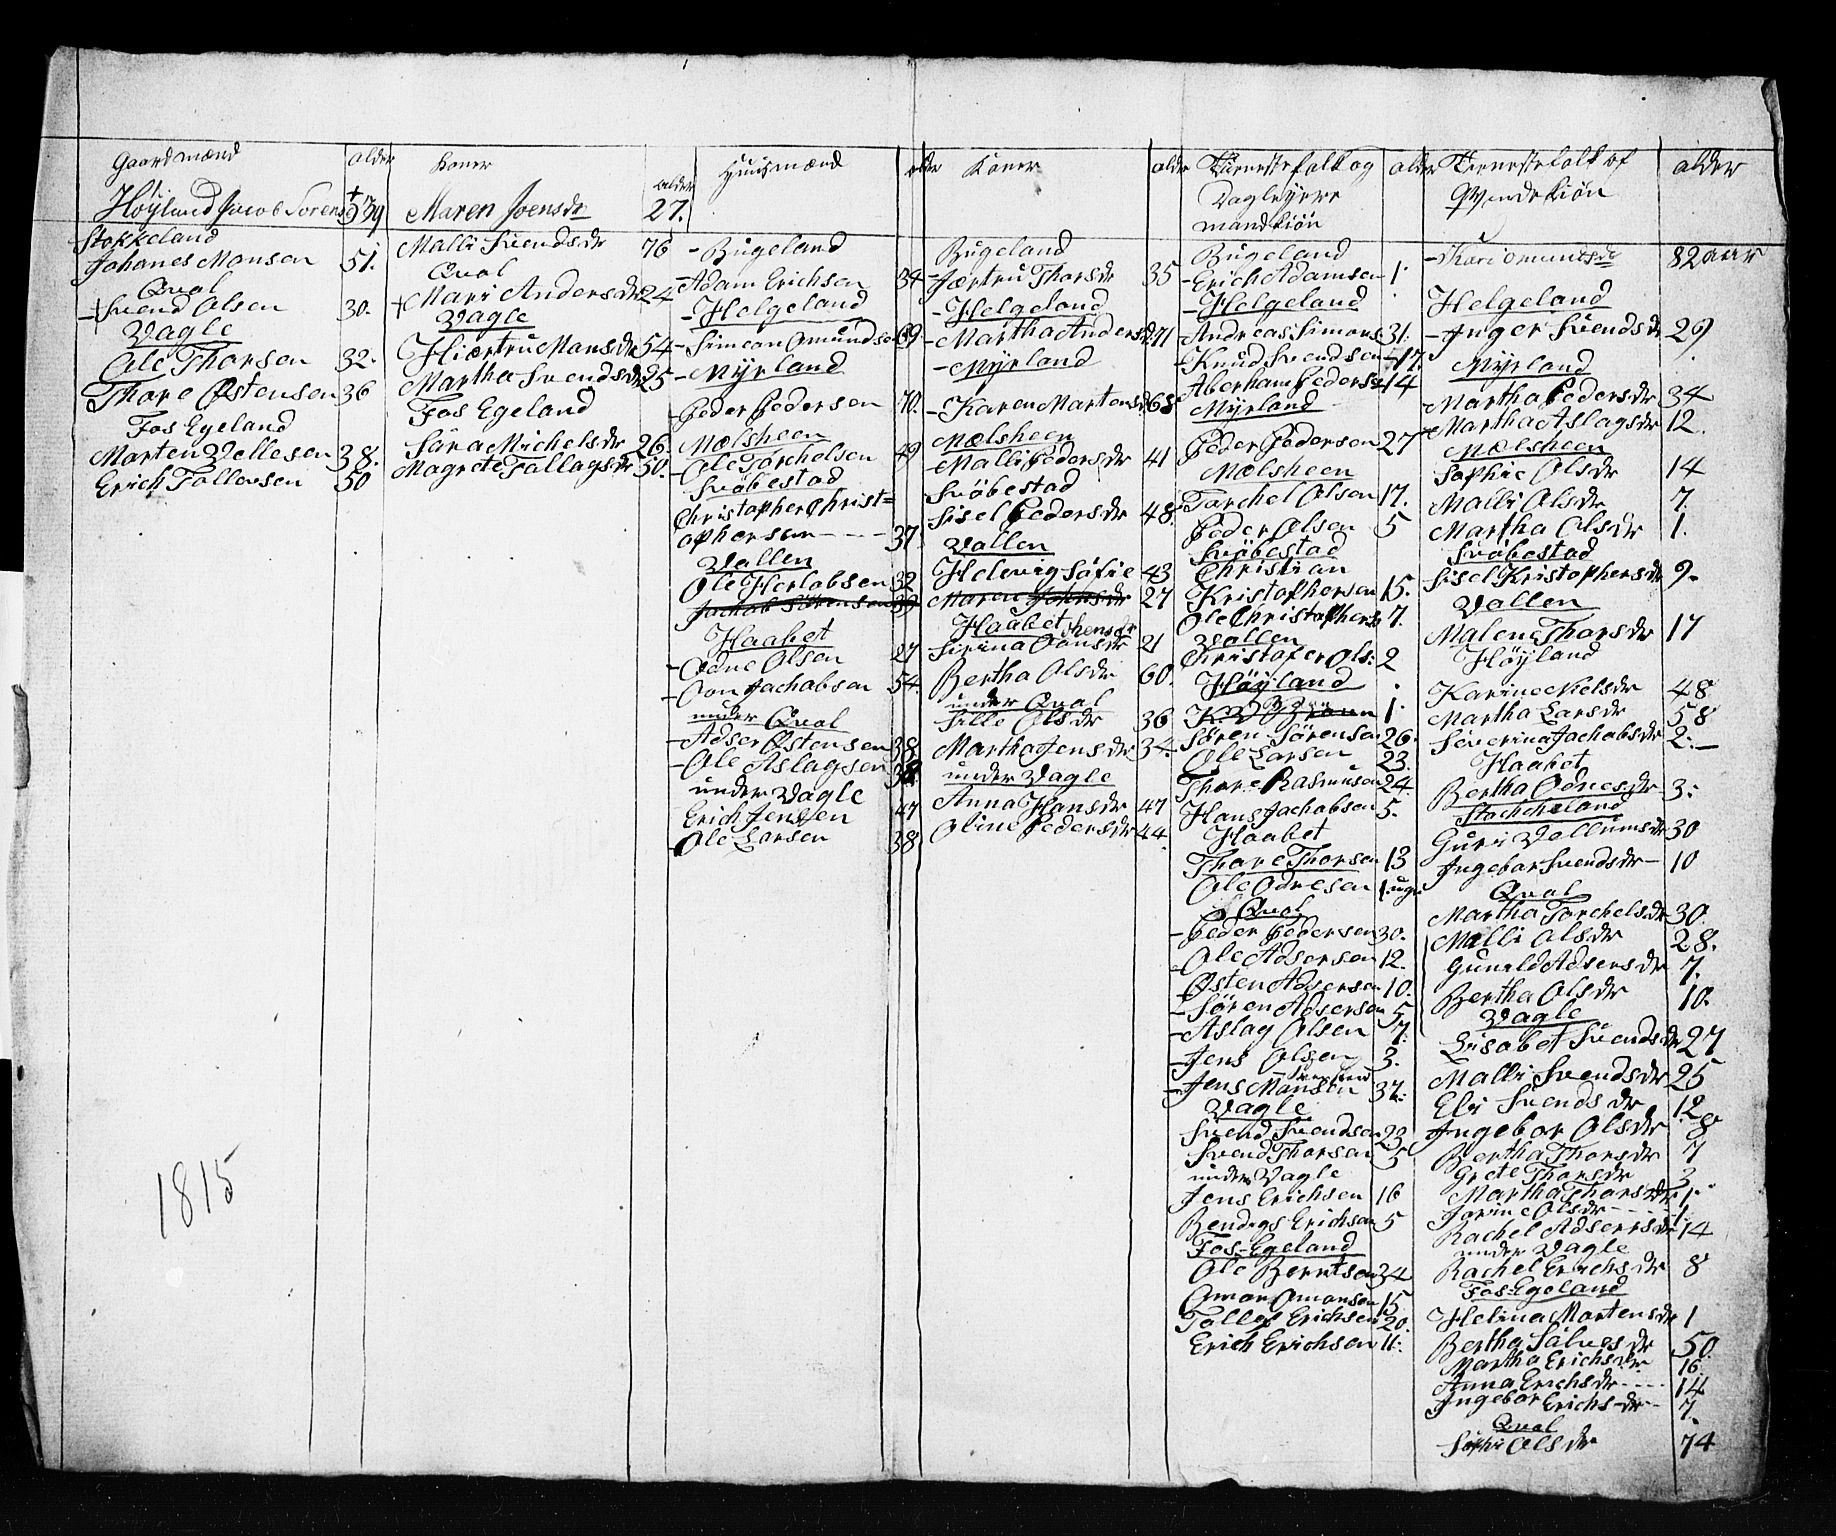 Gaardmænd
alder
koner
alder
Huusmænd
alder
Koner
alder
Tienestefolk og
Dagleyere
mandkiön
alder
Tienestefolk af
Qvindekiön
alder
Höyland Jacob Sorens
39
Maren Joensdr
27.
Stokkeland
Johanes Monsen 51.
Qval
Svend Olsen 30.
Vagle
Ole Thorsen 32.
Thore Østensen 36
Fos Egeland
Morten Vellesen 38.
Erich Tollevsen 50
1815
Malli Svendsdr 76
Qval
Mari Andersdr 24
Vagle
Hiærtru Monsdr 54
Martha Svendsdr 25
Fos Egeland
Sara Michelsdr 26.
Magrete Tallagsdr 50.
Bugeland
Adam Erichsen 34
Helgeland
Simeon Omundsen 69.
Myrland
Peder Pedersen 70.
Mælsheen
Ole Torchelsen 49
Svöbestad
Christopher Christ=
ophersen 37.
Vallen
Ole Herlobsen 32
Jachob Sörensen 39
Haabet
Odne Olsen 27
Oon Jachobsen 54.
under Qval
Adser Østensen 38
Ole Aslagsen 38
under Vagle
Erich Jenssen 47
Ole Larsen 38
Bugeland
Jærtru Thorsdr 35
Helgeland
Martha Andersdr 71
Myrland
Karen Martensdr 68
Mælsheen
Malli Pedersdr 41
Svöbestad
Sisel Pedersdr 48.
Vallen
Helevig Sofie 43
Maren Johnsdr 27
Haabet
Sirina 21
Bertha Olsdr 60.
under Qval
Sille Olsdr 36
Martha Jensdr 34.
under Vagle
Anna Hansdr 47
Oline Pedersdr 44.
Bugeland
Erich Adamsen 1.
Helgeland
Andreas Simons 31.
Knud Svendsen 17.
Aberham Pedersen 14
Myrland
Peder Pedersen 27
Mælsheen
Torchel Olsen 17.
Peder Olsen 5
Svöbestad
Christian
Kristophersen 15.
Ole Christophers 7.
Vallen
Christofer Ols: 2
Höyland
1.
Sören Sörensen 26.
Ole Larsen 23.
Thore Rasmusen 24
Hans Jachobsen 5.
Haabet
Thore Thorsen 13
Ole Odnesen 1. uge
Qval
Peder Pedersen 30.
Ole Adsersen 12.
Østen Adsersen 10.
Sören Adsersen 5
Aslag Olsen 7.
Jens Olsen 3.
Jens Monsen 37.
Vagle
Svend Svendsen 23
Svend Thorsen 5
under Vagle
Jens Erichsen 16
Bendigs Erichsen 5
Fos-Egeland
Ole Berntsen 34
Omon Omonsen 15.
Tollef Erichsen 20.
Erich Erichsen 11.
Kari Omundsdr 82 aar
Helgeland
Inger Svendsdr 29
Myrland
Martha Pedersdr 34
Martha Aslagsdr 12.
Mælsheen
Sophie Olsdr 14
Malli Olsdr 7.
Martha Olsdr 1.
Svöbestad
Sisel Kristophersdr 9.
Vallen
Malene Thorsdr 17
Höyland
Karine Nielsdr 48
Martha Larsdr 58
Severina Jachobsdr 2.
Haabet
Bertha Odnesdr 3.
Stochcheland
Guri Vallumsdr 30
Ingebor Svendsdr 10
Qval
Martha Torchelsdr 30.
Malli Olsdr 28.
Gunild Adsersdr 7.
Bertha Olsdr 10.
Vagle
Lisabet Svendsdr 27
Malli Svendsdr 25
Eli Svendsdr 12
Ingebor Olsdr 8
Bertha Thorsdr 7
Grete Thorsdr 3
Martha Thorsdr 1.
Jorine Olsdr 1.
Rachel Adsersdr 14
under Vagle
Rachel Erichsdr 8
Fos-Egeland
Helina Martensdr 1
Bertha Salvesdr 50.
Martha Erichsdr 16
Anna Erichsdr 14
Ingebor Erichsdr 7.
Qval
Sophi Olsdr 74